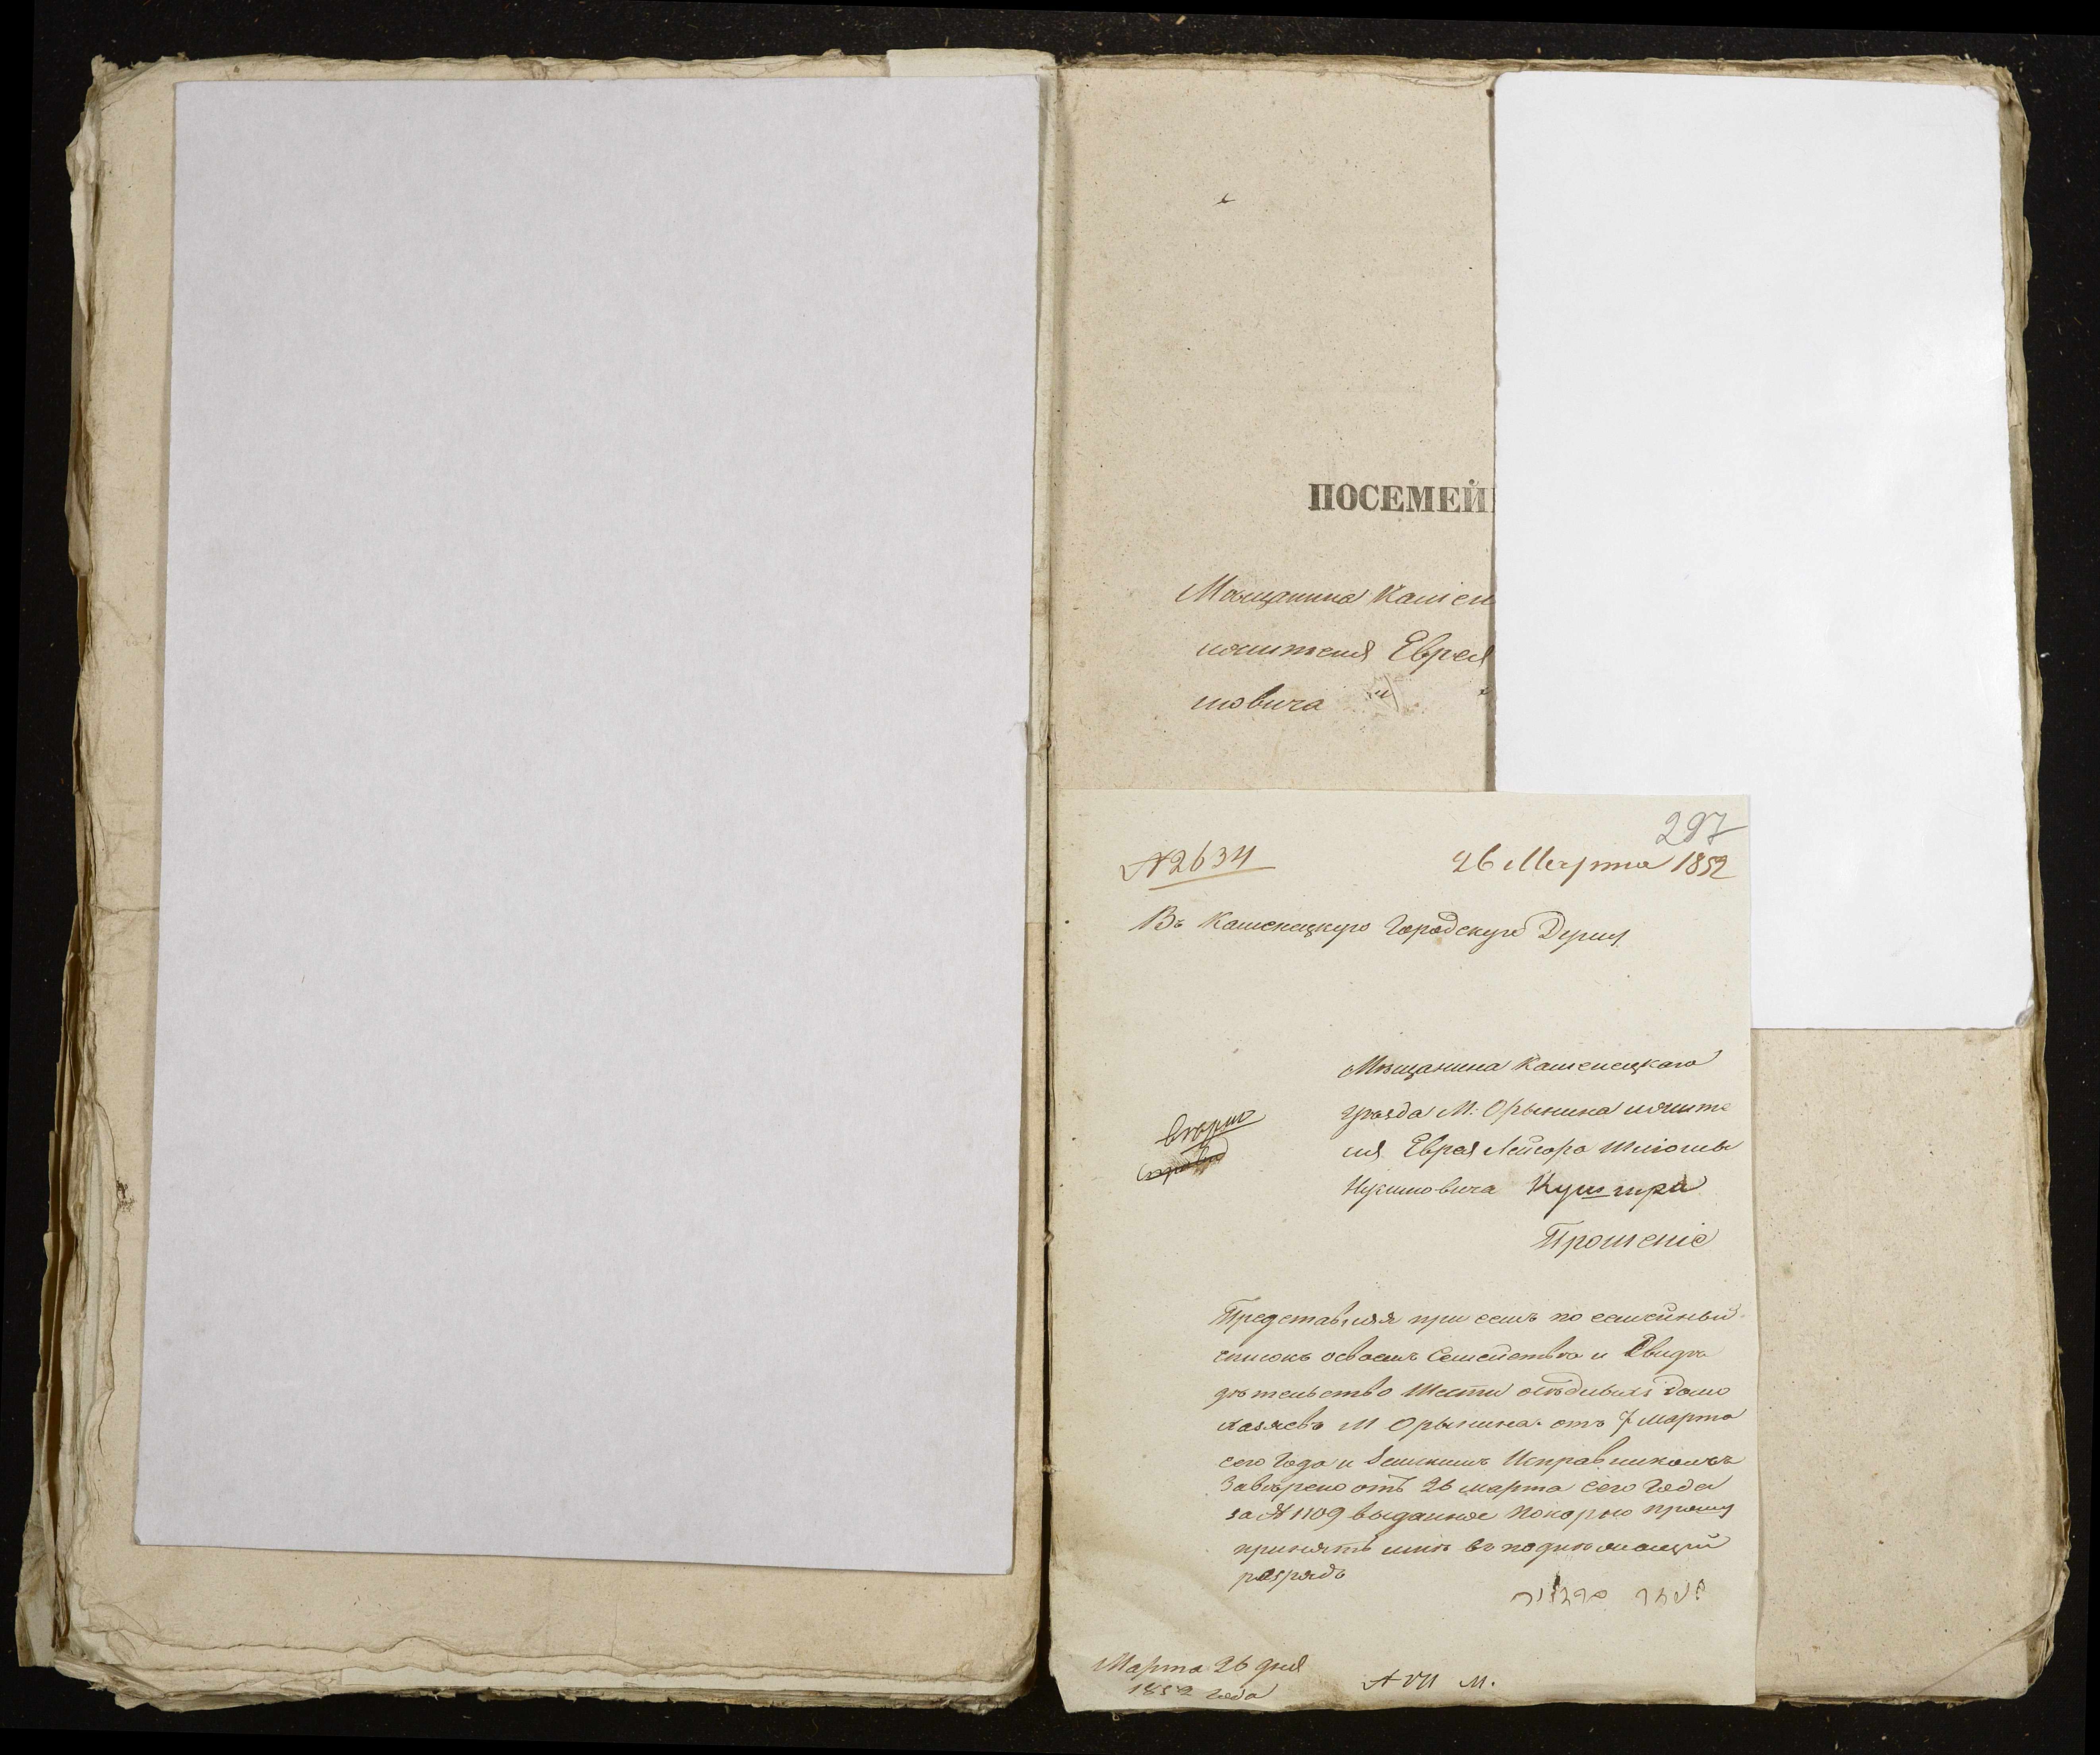 ПОСЕМЕЙ
Мѣщанина Камен
жителя Еврея
мовича
297
№ 2634
26 Марта 1852
Въ Каменецкую Городскую Думу
Мѣщанина Каменецкаго
уѣзда М: Орынина жите
ля Еврея Лейзора
Кушнира
Прошеніе
Представляя при семъ по семейный
списокъ освоемъ Семействѣ и Свидѣ
дѣтельство Шести осѣдлыхъ домо
хозяевъ М Орынина отъ 7 марта
сего Года и Земскимъ Исправникомъ
Завѣрено отъ 26 марта сего Года
за № 1109 выданное покорно прошу
принять въ
разрядъ
Марта 26 дня
1852 года